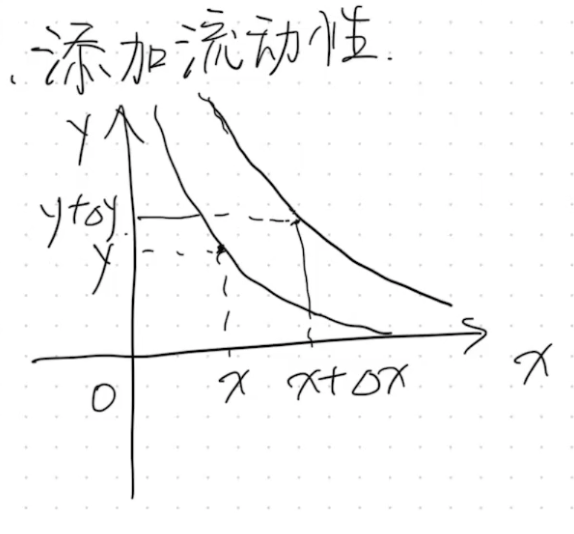 .添加流动性.
y
y+Δy
y
0
x
x+Δx
x